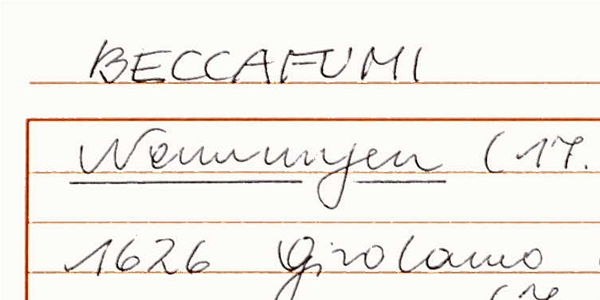 BECCAFUMI
Nennungen (17.
1626 Girolamo